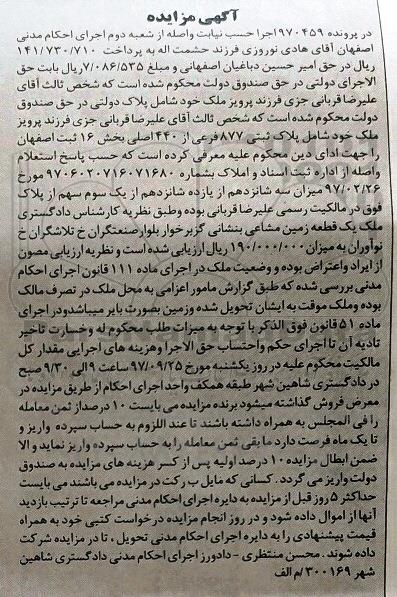 آگهی مزایده
در پرونده ۹۷۰۴۵۹ اجرا حسب نیابت واصله از شعبه دوم اجرای احکام مدنی
اصفهان آقای هادی نوروزی فرزند حشمت اله به پرداخت ۱۴۱/۷۳۰/۷۱۰
ریال در حق امیر حسین دباغیان اصفهانی و مبلغ ۷/۰۸۶/۵۳۵ ریال بابت حق
الاجرای دولتی در حق صندوق دولت محکوم شده است که شخص ثالث آقای
علیرضا قربانی جزی فرزند پرویز ملک خود شامل پلاک دولتی در حق صندوق
دولت محکوم شده است که شخص ثالث آقای علیرضا قربانی جزی فرزند پرویز
ملک خود شامل پلاک ثبتی ۸۷۷ فرعی از ۴۴۰ اصلی بخش ۱۶ ثبت اصفهان
را جهت ادای دین محکوم علیه معرفی کرده است که حسب پاسخ استعلام
واصله از اداره ثبت اسناد و املاک بشماره ۹۷۰۶۰۲۰۷۱۶۰۷۱۶۸۰ مورخ
۹۷/۰۲/۲۶ میزان سه شانزدهم از یازده شانزدهم از یک سوم سهم از پلاک
فوق در مالکیت رسمی علیرضا قربانی بوده وطبق نظریه کارشناس دادگستری
ملک یک قطعه زمین مشاعی بنشانی گزبرخوار بلوارصنعتگران خ تلاشگران خ
نوآوران به میزان ۱۹۰/۰۰۰/۰۰۰ ریال ارزیابی شده است و نظریه ارزیابی مصون
از ایراد واعتراض بوده و وضعیت ملک در اجرای ماده ۱۱۱ قانون اجرای احکام
مدنی بررسی شده که طبق گزارش مامور اعزامی به محل ملک در تصرف مالک
بوده وملک موقت به ایشان تحویل شده وزمین بصورت بایر میباشدودر اجرای
ماده ۵۱ قانون فوق الذکر با توجه به میزات طلب محکوم له وخسارت تاخیر
تادیه آن تا اجرای حکم واحتساب حق الاجرا وهزینه های اجرایی مقدار کل
مالکیت محکوم علیه در روز یکشنبه مورخ ۹۷/۰۹/۲۵ ساعت ۹ الی ۹/۳۰ صبح
در دادگستری شاهین شهر طبقه همکف واحد اجرای احکام از طریق مزایده در
معرض فروش گذاشته میشود برنده مزایده می بایست ۱۰ درصداز ثمن معامله
را فی المجلس به همراه داشته باشند تا عند اللزوم به حساب سپرده واریز و
تا یک ماه فرصت دارد ما بقی ثمن معامله را به حساب سپرده واریز نماید و الا
ضمن ابطال مزایده ۱۰ درصد اولیه پس از کسر هزینه های مزایده به صندوق
دولت واریز می گردد . کسانی که مایل ب رکت در مزایده می باشند می بایست
حداکثر ۵ روز قبل از مزایده به دایره اجرای احکام مدنی مراجعه تا ترتیب بازدید
آنها از اموال داده شود و در روز انجام مزایده درخواست کتبی خود به همراه
قیمت پیشنهادی را به دایره اجرای احکام مدنی تحویل ، تا در مزایده شرکت
داده شوند . محسن منتظری - دادورز اجرای احکام مدنی دادگستری شاهین
شهر ۳۰۰۱۶۹ /م الف